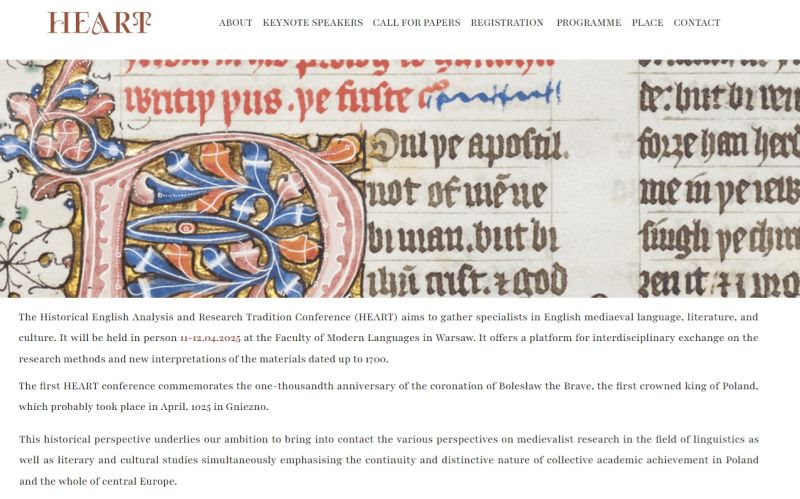 HEART
ABOUT KEYNOTE SPEAKERS CALL FOR PAPERS REGISTRATION PROGRAMME PLACE CONTACT
writiþ þus. þe firste
Oul þe apostil.
not of mẽne
bi man. but bi
ihũ crist. ⁊ god
te: but bi
forȝe han
me in þe
singh þe
ȝen it
The Historical English Analysis and Research Tradition Conference (HEART) aims to gather specialists in English mediaeval language, literature, and
culture. It will be held in person 11-12.04.2025 at the Faculty of Modern Languages in Warsaw. It offers a platform for interdisciplinary exchange on the
research methods and new interpretations of the materials dated up to 1700.
The first HEART conference commemorates the one-thousandth anniversary of the coronation of Bolesław the Brave, the first crowned king of Poland,
which probably took place in April, 1025 in Gniezno.
This historical perspective underlies our ambition to bring into contact the various perspectives on medievalist research in the field of linguistics as
well as literary and cultural studies simultaneously emphasising the continuity and distinctive nature of collective academic achievement in Poland
and the whole of central Europe.